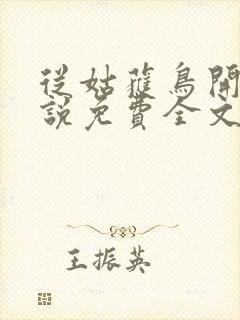 從姑蘿鳥開
說免費全文
王振英